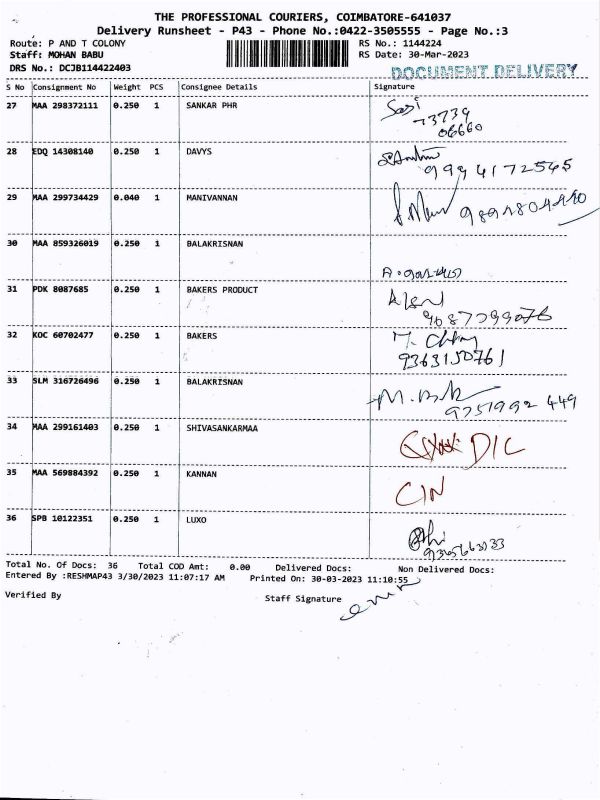 THE PROFESSIONAL COURIERS, COIMBATORE-641037
Delivery Runsheet - P43 - Phone No.:0422-3505555 - Page No.:3
Route: P AND T COLONY RS No.: 1144224
Staff: MOHAN BABU RS Date: 30-Mar-2023
DRS No.: DCJB114422403 DOCUMENT DELIVERY
S No Consignment No Weight PCS Consignee Details Signature
27 MAA 298372111 0.250 1 SANKAR PHR
73739
06660
28 EDQ 14308140 0.250 1 DAVYS
9994172545
29 MAA 299734429 0.040 1 MANIVANNAN
30 MAA 859326019 0.250 1 BALAKRISNAN
31 PDK 8087685 0.250 1 BAKERS PRODUCT
32 KOC 60702477 0.250 1 BAKERS
9363150761
33 SLM 316726496 0.250 1 BALAKRISNAN
9751992 449
34 MAA 299161403 0.250 1 SHIVASANKARMAA
DIC
35 MAA 569884392 0.250 1 KANNAN
CIN
36 SPB 10122351 0.250 1 LUXO
Total No. Of Docs: 36 Total COD Amt: 0.00 Delivered Docs: Non Delivered Docs:
Entered By :RESHMAP43 3/30/2023 11:07:17 AM Printed On: 30-03-2023 11:10:55
Verified By Staff Signature